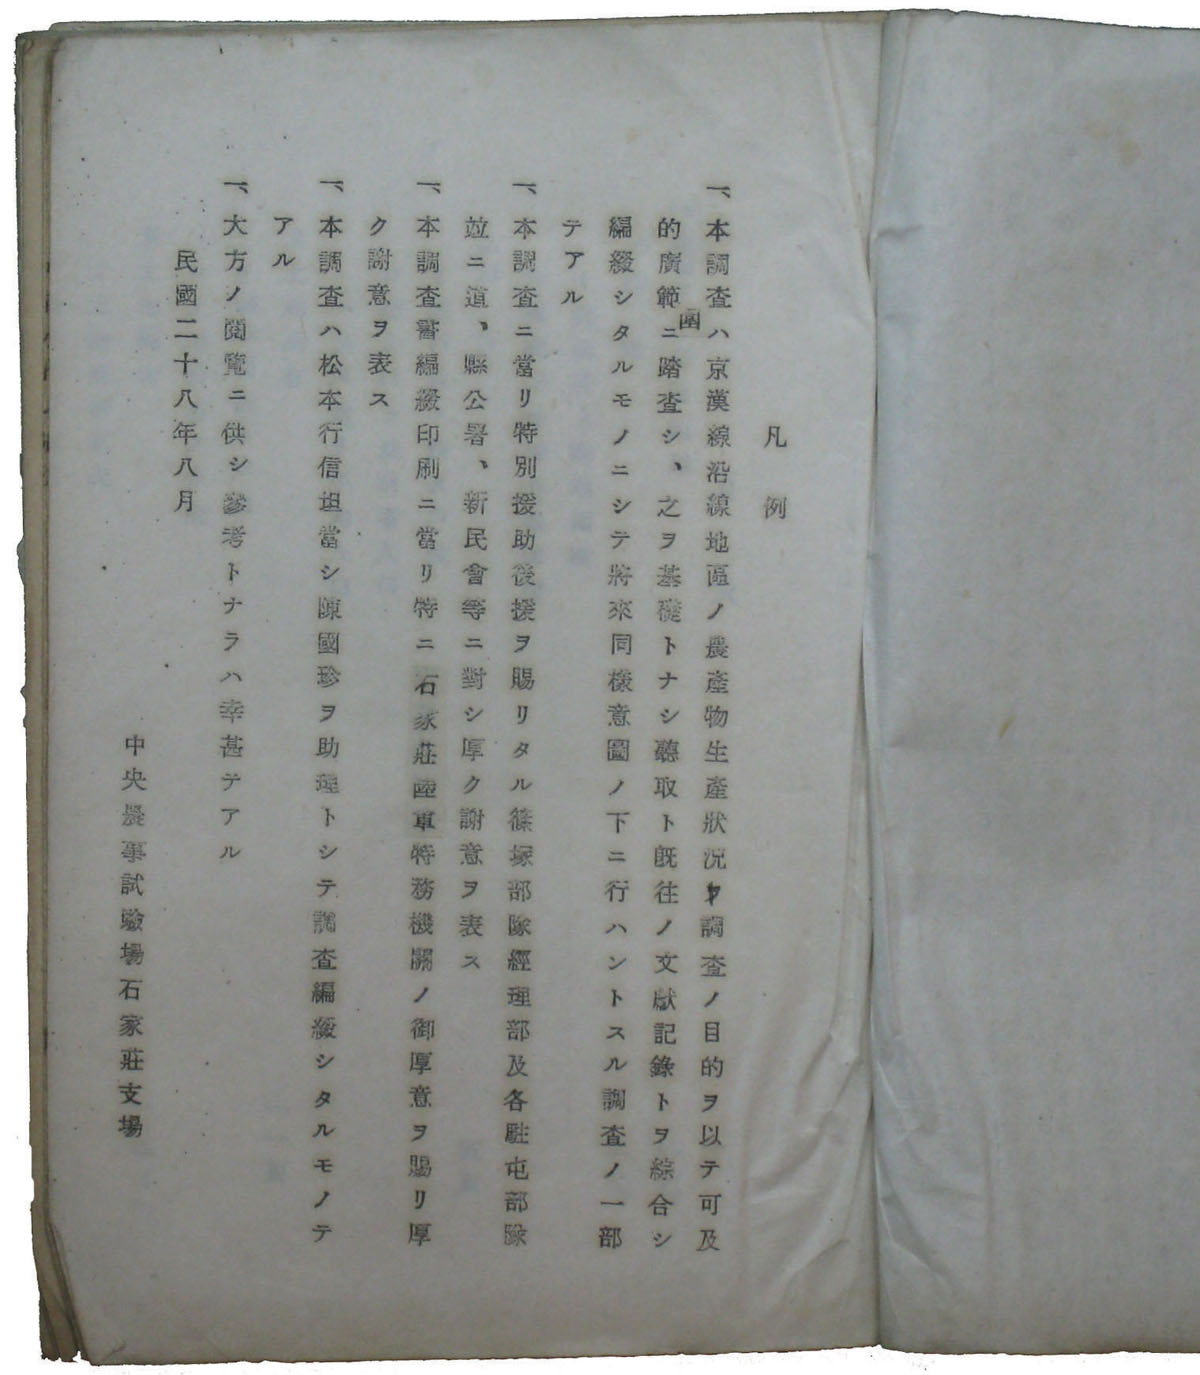 凡例
一、本調査ハ京漢線沿線地區ノ農產物生產狀況ヲ調査ノ目的ヲ以テ可及
的廣範圍ニ踏査シ、之ヲ基礎トナシ聽取ト既往ノ文獻記錄トヲ綜合シ
編綴シタルモノニシテ將來同樣意圖ノ下ニ行ハントスル調査ノ一部
テアル
一、本調査ニ當リ特別援助後援ヲ賜リタル篠塚部隊經理部及各駐屯部隊
竝ニ道、縣公署、新民會等ニ對シ厚ク謝意ヲ表ス
一、本調査書編綴印刷ニ當リ特ニ石家莊陸軍特務機關ノ御厚意ヲ賜リ厚
ク謝意ヲ表ス
一、本調査ハ松本行信坦當シ陳國珍ヲ助理トシテ調査編綴シタルモノテ
アル
一、大方ノ閱覽ニ供シ參考トナラハ幸甚テアル
民國二十八年八月
中央農事試驗場石家莊支場